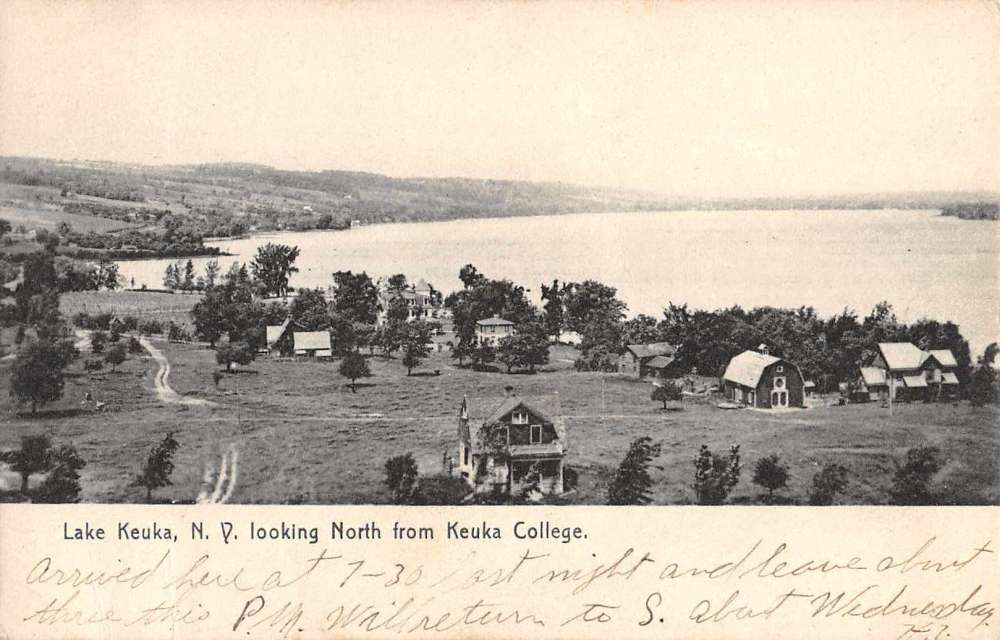 Lake Keuka, N. Y. looking North from Keuka College.
Arrived here at 7-30 last night and leave about
three this P.M. Will return to S. about Wednesday